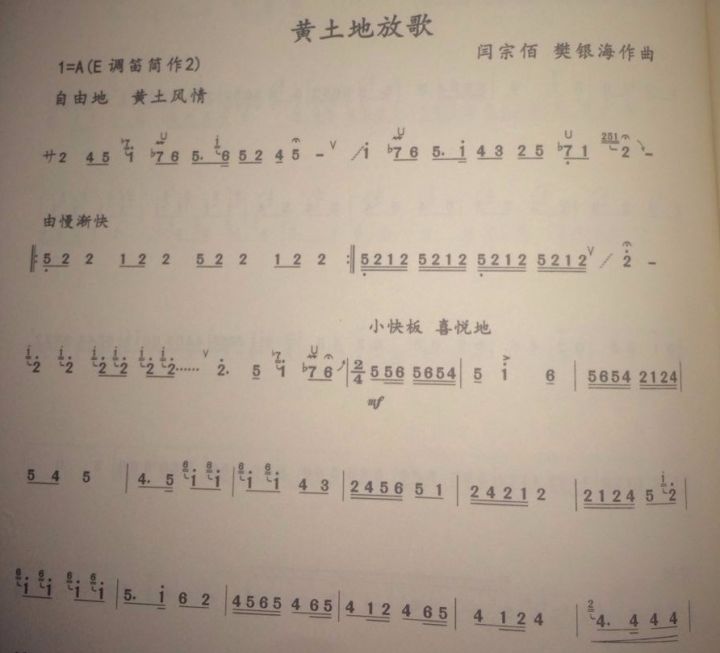 黄土地放歌
闫宗佰 樊银海作曲
1=A(E 调笛筒作2)
自由地 黄土风情
サ2 45 ♭7 1 ♭76 5. i 6 52 4 5 – ∨ / i ♭76 5. i 43 25 ♭71 251 2 –
由慢渐快
‖: 52 2 12 2 52 2 12 2 :‖ 5212 5212 5212 5212 ∨ / 2 –
小快板 喜悦地
i 2 i 2 i 2 i 2 i 2 i 2 …… ∨ 2. 5 ♭7 1 ♭76 | 2/4 5 56 5654 | 5 i 6 | 5654 2124 |
mf
54 5 | 4. 5 6 1 6 1 | 6 1 6 1 43 | 2456 51 | 2421 2 | 2124 5 i 2 |
6 1 6 1 6 1 6 1 | 5. i 62 | 4565 4 65 | 4 12 4 65 | 4 12 4 | 2 4. 4 44 |